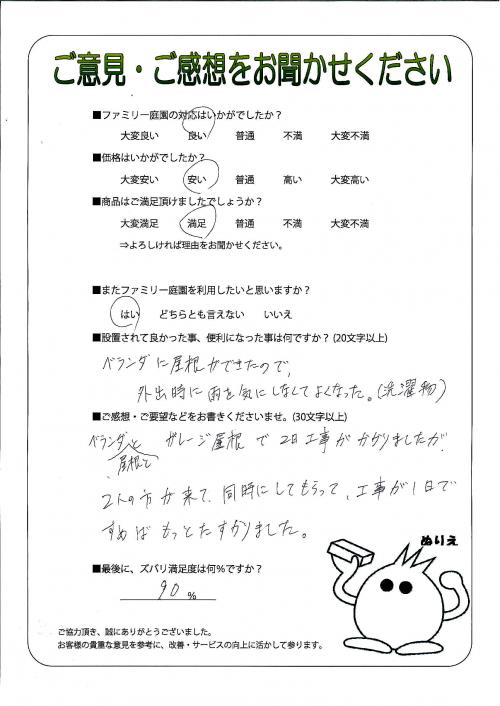 ご意見・ご感想をお聞かせください
■ファミリー庭園の対応はいかがでしたか？
大変良い 良い 普通 不満 大変不満
■価格はいかがでしたか？
大変安い 安い 普通 高い 大変高い
■商品はご満足頂けましたでしょうか？
大変満足 満足 普通 不満 大変不満
⇒よろしければ理由をお聞かせください。
■またファミリー庭園を利用したいと思いますか？
はい どちらとも言えない いいえ
■設置されて良かった事、便利になった事は何ですか？(20文字以上)
ベランダに屋根ができたので、
外出時に雨を気にしなしてよくなった。(洗濯物)
■ご感想・ご要望などをお書きくださいませ。(30文字以上)
ベランダと ガレージ屋根で2日工事がかかりましたが、
屋根と
2人の方が来て、同時にしてもらって、工事が1日で
すめばもっとたすかりました。
ぬりえ
■最後に、ズバリ満足度は何％ですか？
90 %
ご協力頂き、誠にありがとうございました。
お客様の貴重な意見を参考に、改善・サービスの向上に活かして参ります。